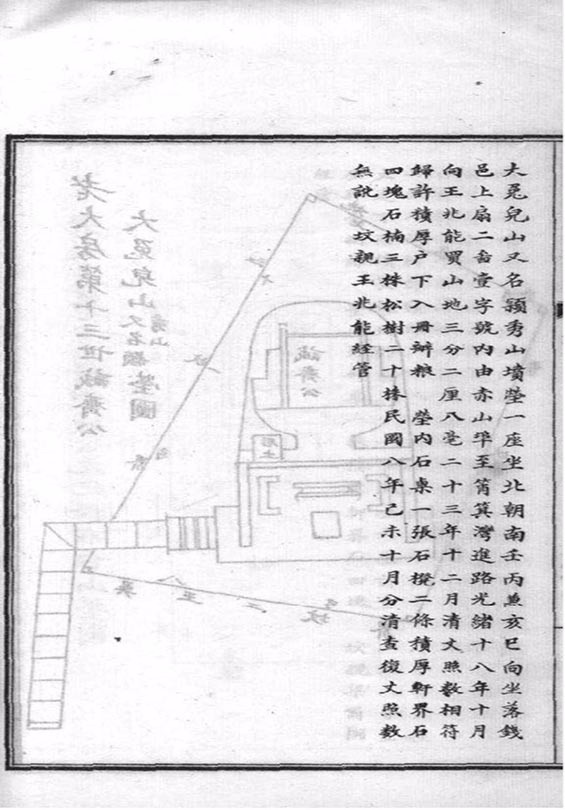 大兎兒山又名潁秀山墳塋一座坐北朝南壬丙兼亥巳向坐落錢
邑上扇二啚壹字號内由赤山埠至筲箕灣進路光緒十八年十月
向王兆能買山地三分二厘八毫二十三年十二月清丈照數相符
歸許積厚户下入冊辦粮 塋内石桌一張石櫈二條積厚軒界石
四塊石楠三株松樹二十株民國八年己未十月分清查復丈照數
無訛 坟親王兆能經管
誠齋公
后土
大兎兒山又名潁秀山塋圖
老大房第十三世誠齋公